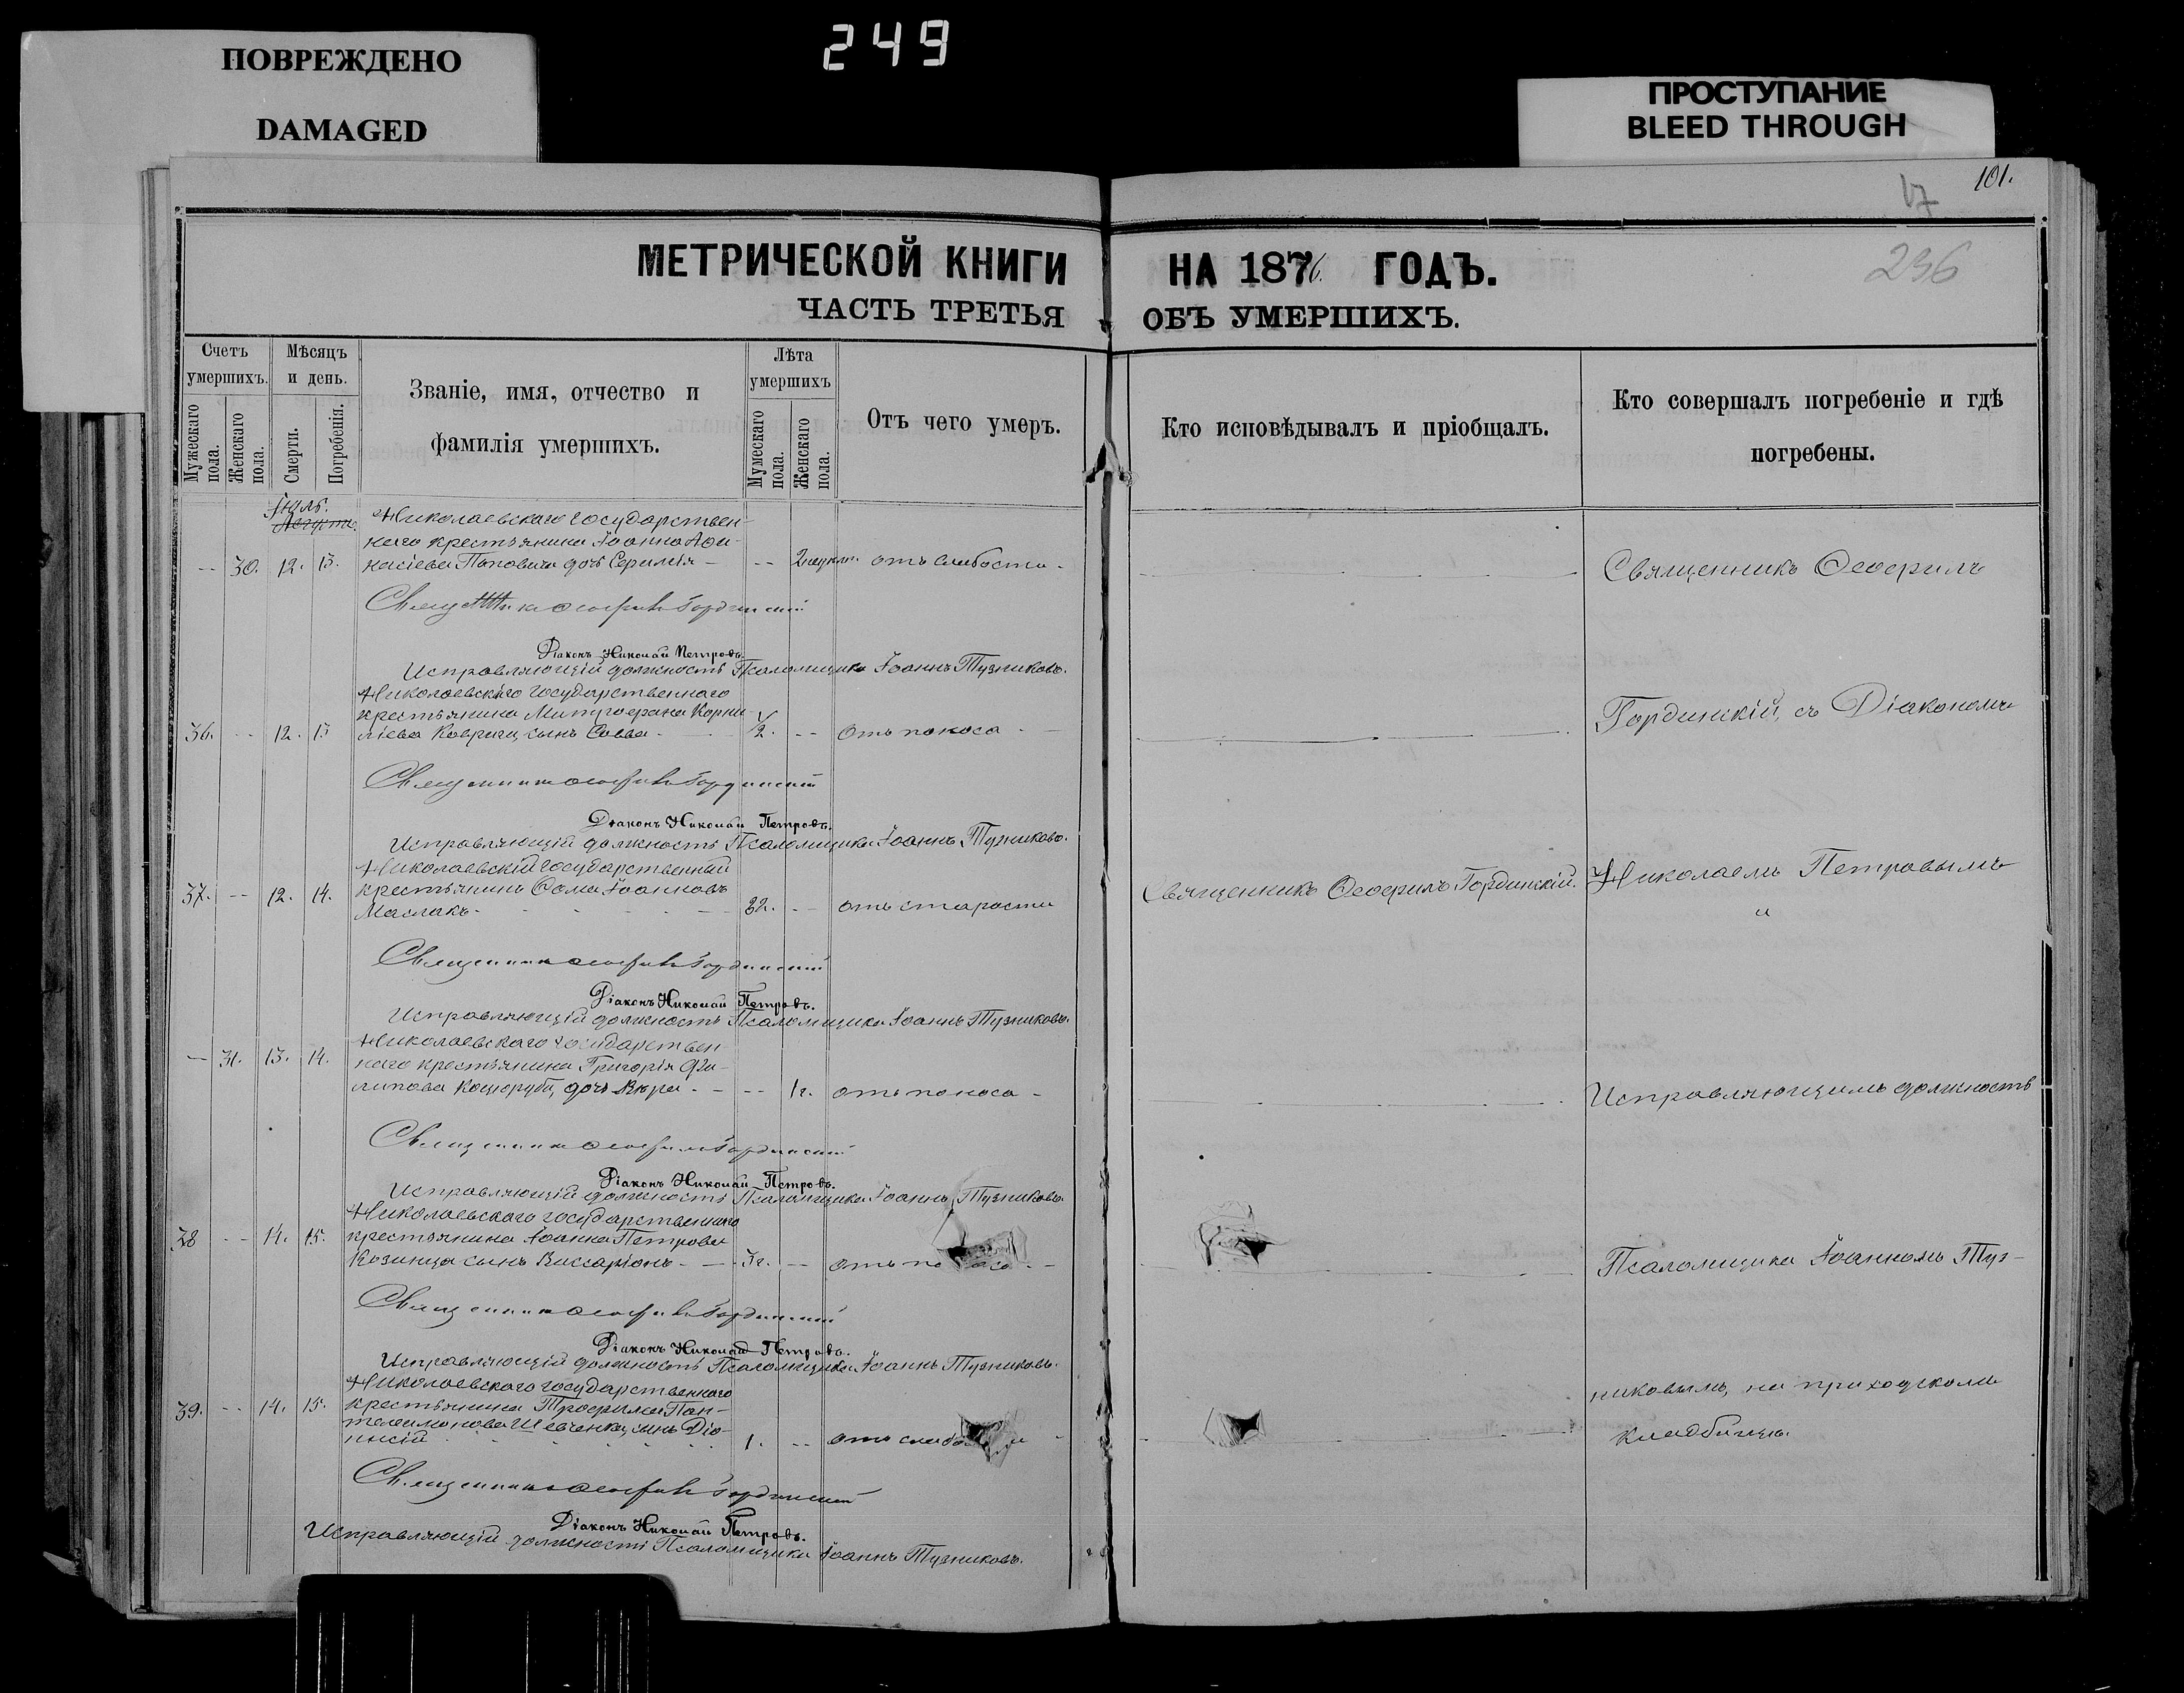 249
ПОВРЕЖДЕНО
DAMAGED
ПРОСТУПАНИЕ
BLEED THROUGH
101.
17
236
МЕТРИЧЕСКОЙ КНИГИ НА 1876 ГОДЪ.
ЧАСТЬ ТРЕТЬЯ ОБЪ УМЕРШИХЪ.
Счетъ умершихъ.
Мужескаго пола.
Женскаго пола.
Мѣсяцъ и день.
Смерти.
Погребенія.
Званіе, имя, отчество и
фамилія умершихъ.
Лѣта умершихъ
Мужескаго пола.
Женскаго пола.
Отъ чего умеръ.
Кто исповѣдывалъ и пріобщалъ.
Кто совершалъ погребеніе и гдѣ
погребены.
Іюль.
Августъ.
Николаевскаго государствен-
наго крестьянина Іоанна
30. 12. 13. Поповича дочь отъ слабости
Священникъ Ѳеофилъ Гординскій
Діаконъ Николай Петровъ.
Исправляющій должность Псаломщика Іоаннъ Тузниковъ.
Николаевскаго государственнаго
крестьянина Митрофана Корни-
36. 12. 13 ліева сынъ Савва 2. отъ поноса
Священникъ Ѳеофилъ Гординскій
Діаконъ Николай Петровъ.
Исправляющій должность Псаломщика Іоаннъ Тузниковъ.
Николаевскій государственный
37. 12. 14. крестьянинъ Ѳома Іоанновъ
Маслакъ 82. отъ старости
Священникъ Ѳеофилъ Гординскій
Діаконъ Николай Петровъ.
Исправляющій должность Псаломщика Іоаннъ Тузниковъ.
Николаевскаго государствен
31. 13. 14. наго крестьянина Григорія Фи-
липова дочь Вѣра 1г. отъ поноса
Священникъ Ѳеофилъ Гординскій
Діаконъ Николай Петровъ.
Исправляющій должность Псаломщика Іоаннъ Тузниковъ
Николаевскаго государственнаго
38 14. 15. крестьянина Іоанна Петрова
Козинца сынъ Виссаріонъ 3г. отъ
Священникъ Ѳеофилъ Гординскій
Діаконъ Николай Петровъ.
Исправляющій должность Псаломщика Іоаннъ Тузниковъ.
Николаевскаго государственнаго
39. 14. 15. крестьянина Трофима Пан-
телимонова Шевченка, сынъ Діо-
нисій 1. отъ
Священникъ Ѳеофилъ Гординскій
Діаконъ Николай Петровъ.
Исправляющій должность Псаломщика Іоаннъ Тузниковъ.
Священникъ Ѳеофилъ Гординскій.
Священникъ Ѳеофилъ
Гординскій, съ Діакономъ
Николаемъ Петровымъ
и
Исправляющимъ должность
Псаломщика Іоанномъ Туз-
никовымъ, на приходскомъ
кладбищѣ.